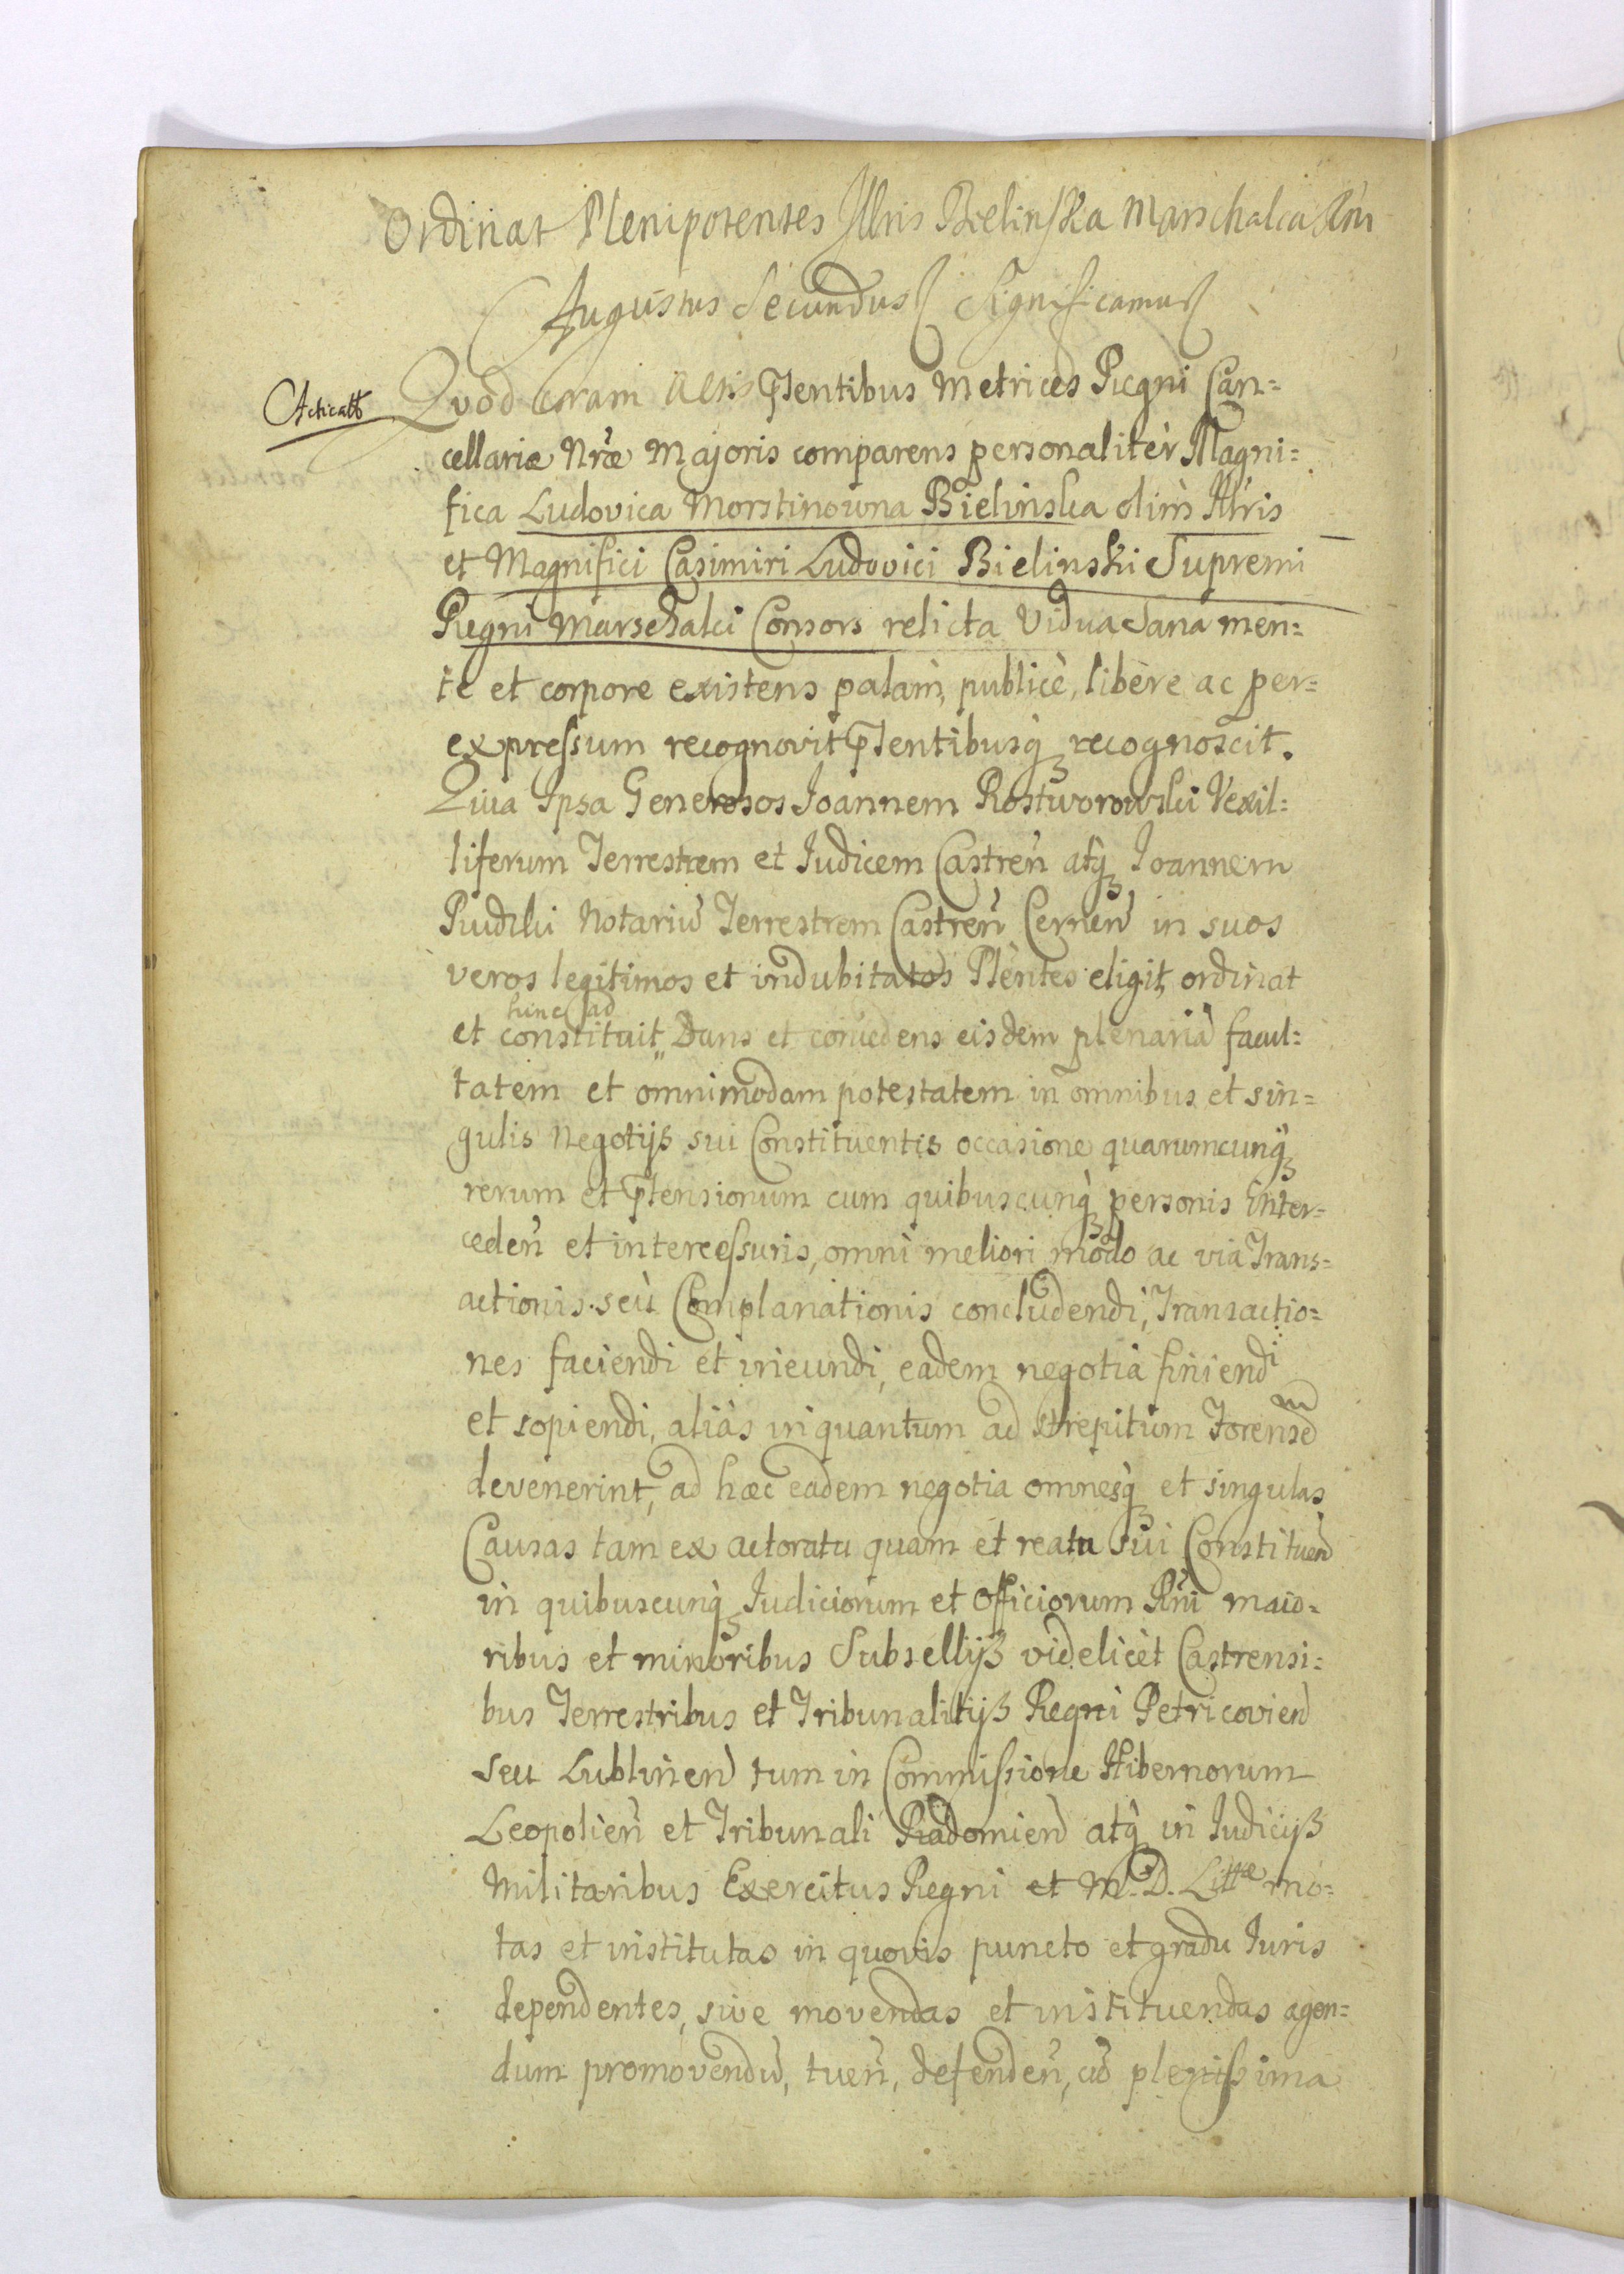 Ordinat Plenipotentes Illris Bielinska Marschalca Rni
Augustus Secundus Significamus
Acticatt
Quod Coram Actis Pñtentibus Metrices Regni Can=
cellariæ Nræ Majoris comparens personalitèr Magni=
fica Ludovica Morstinowna Bielinska olim Illris
et Magnifici Casimiri Ludovici Bielinski Supremi
Regni Marschalci Consors relicta Vidua Sana men=
te et corpore existens palam, publicè, liberè ac per=
expressum recognovit Pñtentibusq recognoscit.
Quia Ipsa Generosos Joannem Rostworowski Vexil=
liferum Terrestrem et Judicem Castren atq Joannem
Rudzki Notariũ Terrestrem Castren Cernen in suos
veros legitimos et indubitatos Plentes eligit, ordinat
hunc ad
et constituit„ Dans et concedens eisdem plenariã facul=
tatem et omnimodam potestatem in omnibus et sin=
gulis Negotijs sui Constituentis occasione quarumcunq
rerum et Ptensionum cum quibuscunq personis inter=
ceden et intercessuris, omni meliori modo ac via Trans=
actionis seù Complanationis concludendi, Transactio=
nes faciendi et inieundi, eadem negotia finiendi
et sopiendi, aliàs inquantum ad strepitum Forensem
devenerint, ad hæc eadem negotia omnesq et singulas
Causas tam ex actoratu quam et reatu sui Constituen
in quibuscunq Judiciorum et Officiorum Rni maio=
ribus et minoribus Subsellijs videlicèt Castrensi=
bus Terrestribus et Tribunalitijs Regni Petricovien
seu Lublinen tum in Commissione Hibernorum
Leopolien et Tribunali Radomien atq in Judicijs
Militaribus Exercitus Regni et M. D. Littæ mo=
tas et institutas in quovis puncto et gradu Iuris
dependentes, sive movendas et instituendas agen=
dum promovendũ, tuen, defenden, cũ plenissima